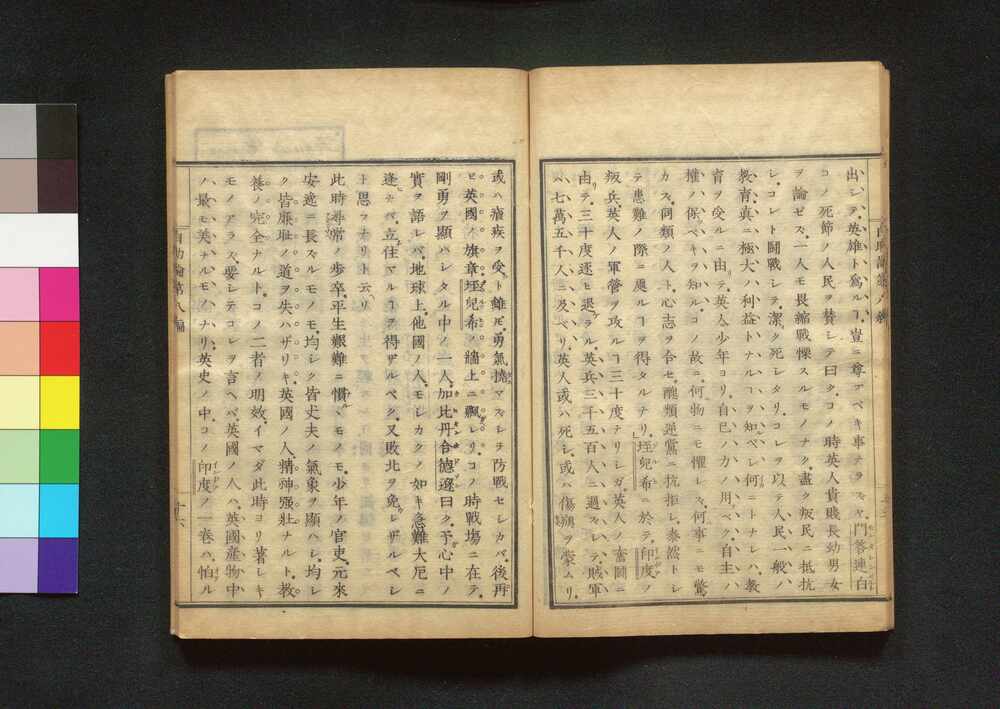 出シテ英雄ト爲ルヿ豈ニ尊フベキ事ナラズヤ門答連白
コノ死節ノ人民ヲ賛シテ曰クコノ時英人貴賤長幼男女
ヲ論ゼス一人モ畏縮戰慄スルモノナク盡ク叛民ニ抵抗
シコレト鬪戰シテ潔ク死シタリコレヲ以テ人民一般ノ
教育眞ニ極大ノ利益トナルヿヲ知ベシ何ニトナレハ教
育ヲ受ルニ由テ英人少年ヨリ自己ノ力ノ用ベク自主ノ
權ノ保ベキヲ知ルコノ故ニ何物ニモ懼レス何事ニモ驚
カス同類ノ人ト心志ヲ合セ醜類逆黨ニ抗拒シ泰然トシ
テ患難ノ際ニ處ルヿヲ得タルナリ坯兒希ニ於テ印度ノ
叛兵英人ノ軍營ヲ攻ルヿ三十度ナリシガ英人ノ奮鬪ニ
由テ三十度逐ヒ退ラル英兵三千五百人ニ過スシテ賊軍
ハ七萬五千人ニ及ベリ英人或ハ死シ或ハ傷ヲ蒙ムリ
或ハ瘡疾ヲ受ト雖𪜈勇氣撓マスシテ防戰セシカバ後再
ビ英國ノ旗章坯兒希ノ牆上ニ飄レリコノ時戰場ニ在テ
剛勇ヲ顯ハシタル中ノ一人加比丹合德遼曰ク予心中ノ
實ヲ語レバ地球上他國ノ人モシカクノ如キ急難大厄ニ
逢ヘバ立住マルヿヲ得ザルベク又敗北ヲ免レザルベシ
ト思フナリト云リ
此時尋常ノ歩卒平生艱難ニ慣ベモノモ少年ノ官吏元來
安逸ニ長スルモノモ均シク皆丈夫ノ氣象ヲ顯ハシ均シ
ク皆廉耻ノ道ヲ失ハザリキ英國ノ人精神强壯ナルト教
養ノ完全ナルトコノ二者ノ明效イマダ此時ヨリ著シキ
モノアラス要シテコレヲ言ヘバ英國ノ人ハ英國產物中
ノ最モ美ナルモノナリ英史ノ中コノ印度ノ一卷ハ怕ル
自助論第八編
十六